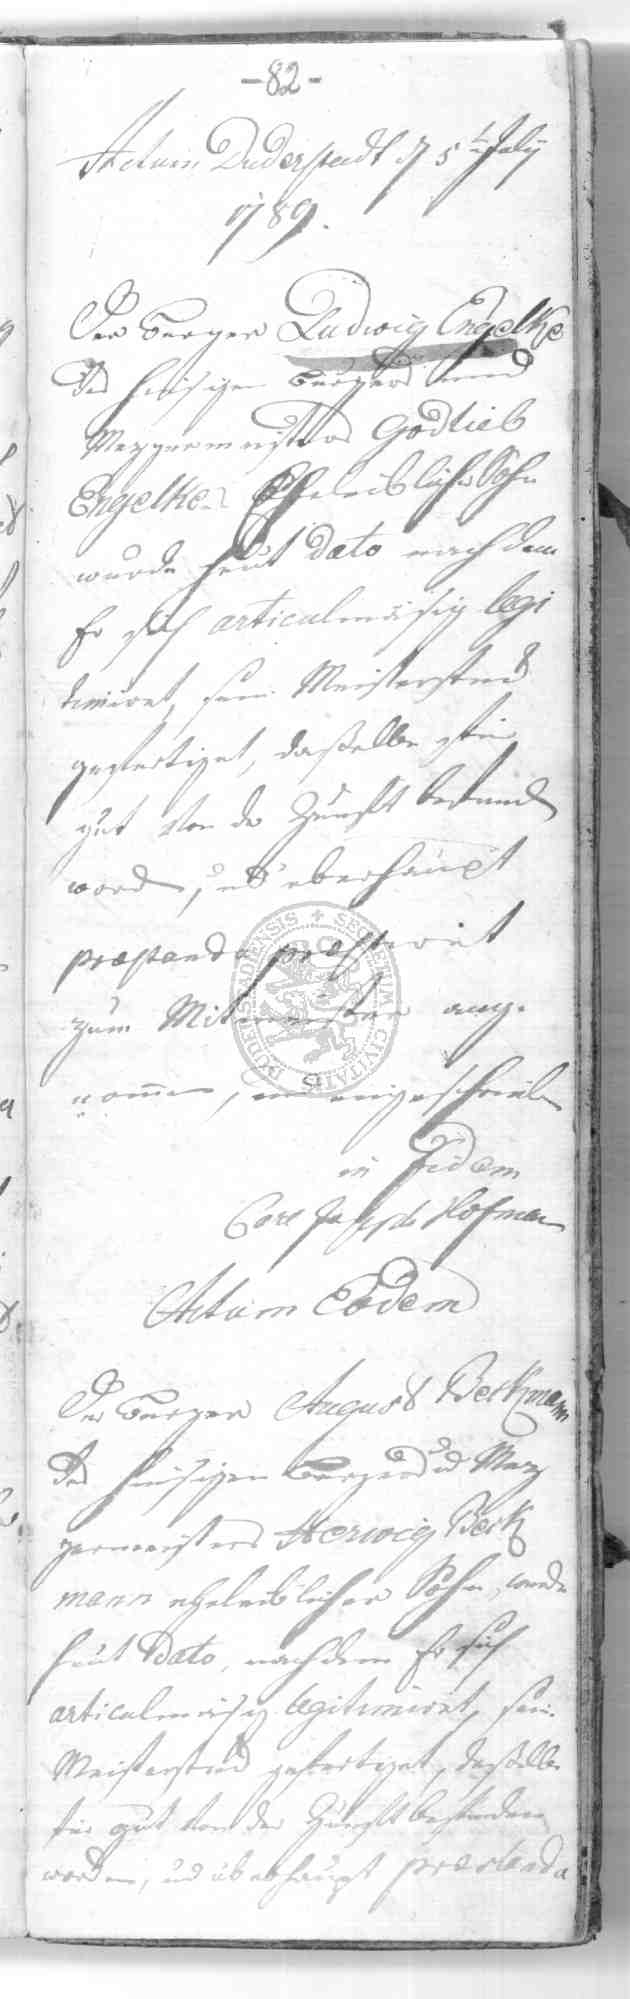 - 82 -
Actum Duderstadt d 5t July
1789.
Der burger Ludwig Engelke
des hiesigen burgers und
Mezgermeisters Godlieb
Engelke Eheleiblicher Sohn
wurde heut dato nach dem
Er sich articulmäsig legi
timiret, sein Meisterstück
gefertiget, dasselbe für
gut von der Zunft befunden
worden, und überhaupt
praestanda praestiret
zum Mitmeister ange
nommen, und eingeschrieben
in fidem
Carl Joseph Hofman
Actum Eodem
Der burger August Beckmann
des hiesigen burgers und Mez
germeisters Herwig Beck
mann eheleiblicher Sohn, wurde
heut Dato, nachdem Er sich
articulmäsig legitimiret, sein
Meisterstück gefertiget, dasselbe
für gut von der Zunft befunden
worden, und überhaupt praestanda
SECRETUM CIVITATIS DUDERSTADIENSIS